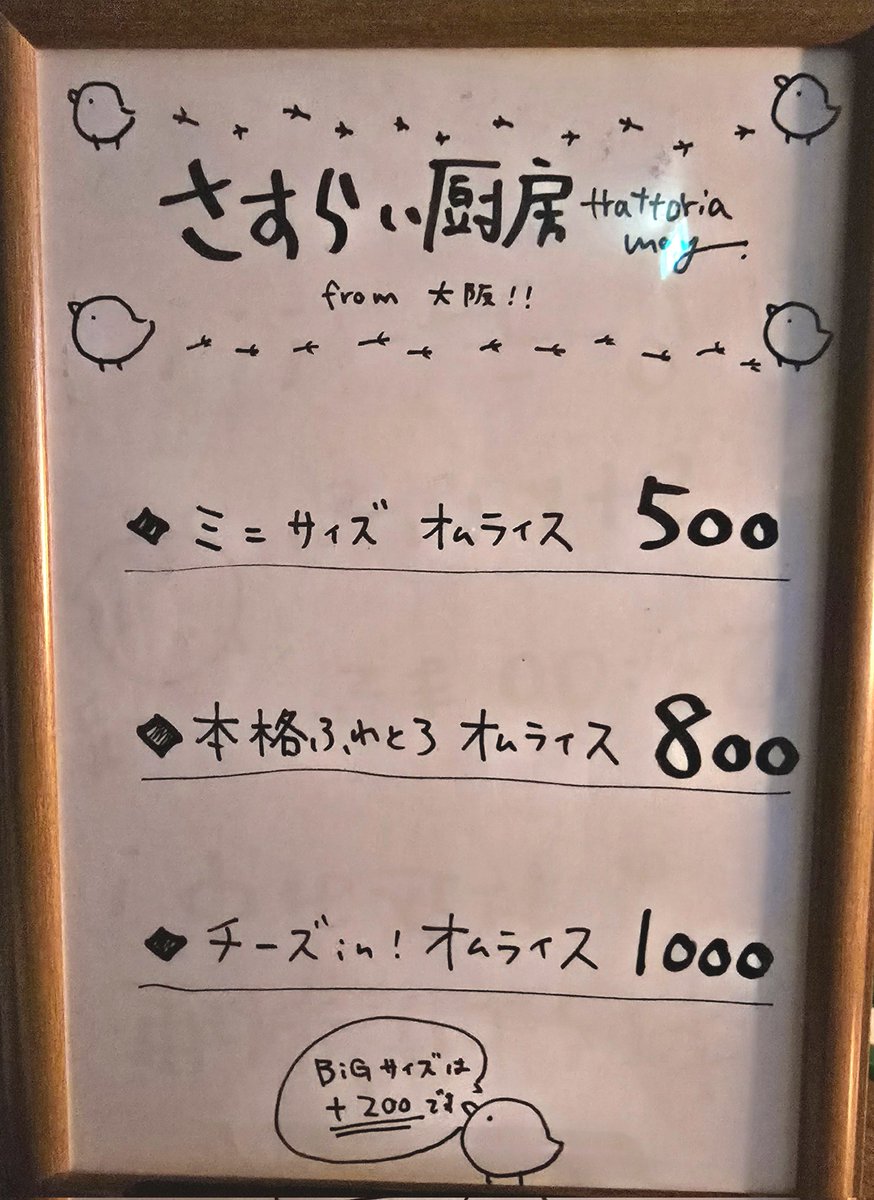 さすらい厨房 trattoria
may
from 大阪!!
◆ ミニサイズ オムライス 500
◆ 本格ふわとろ オムライス 800
◆ チーズin! オムライス 1000
BiGサイズは
+200です